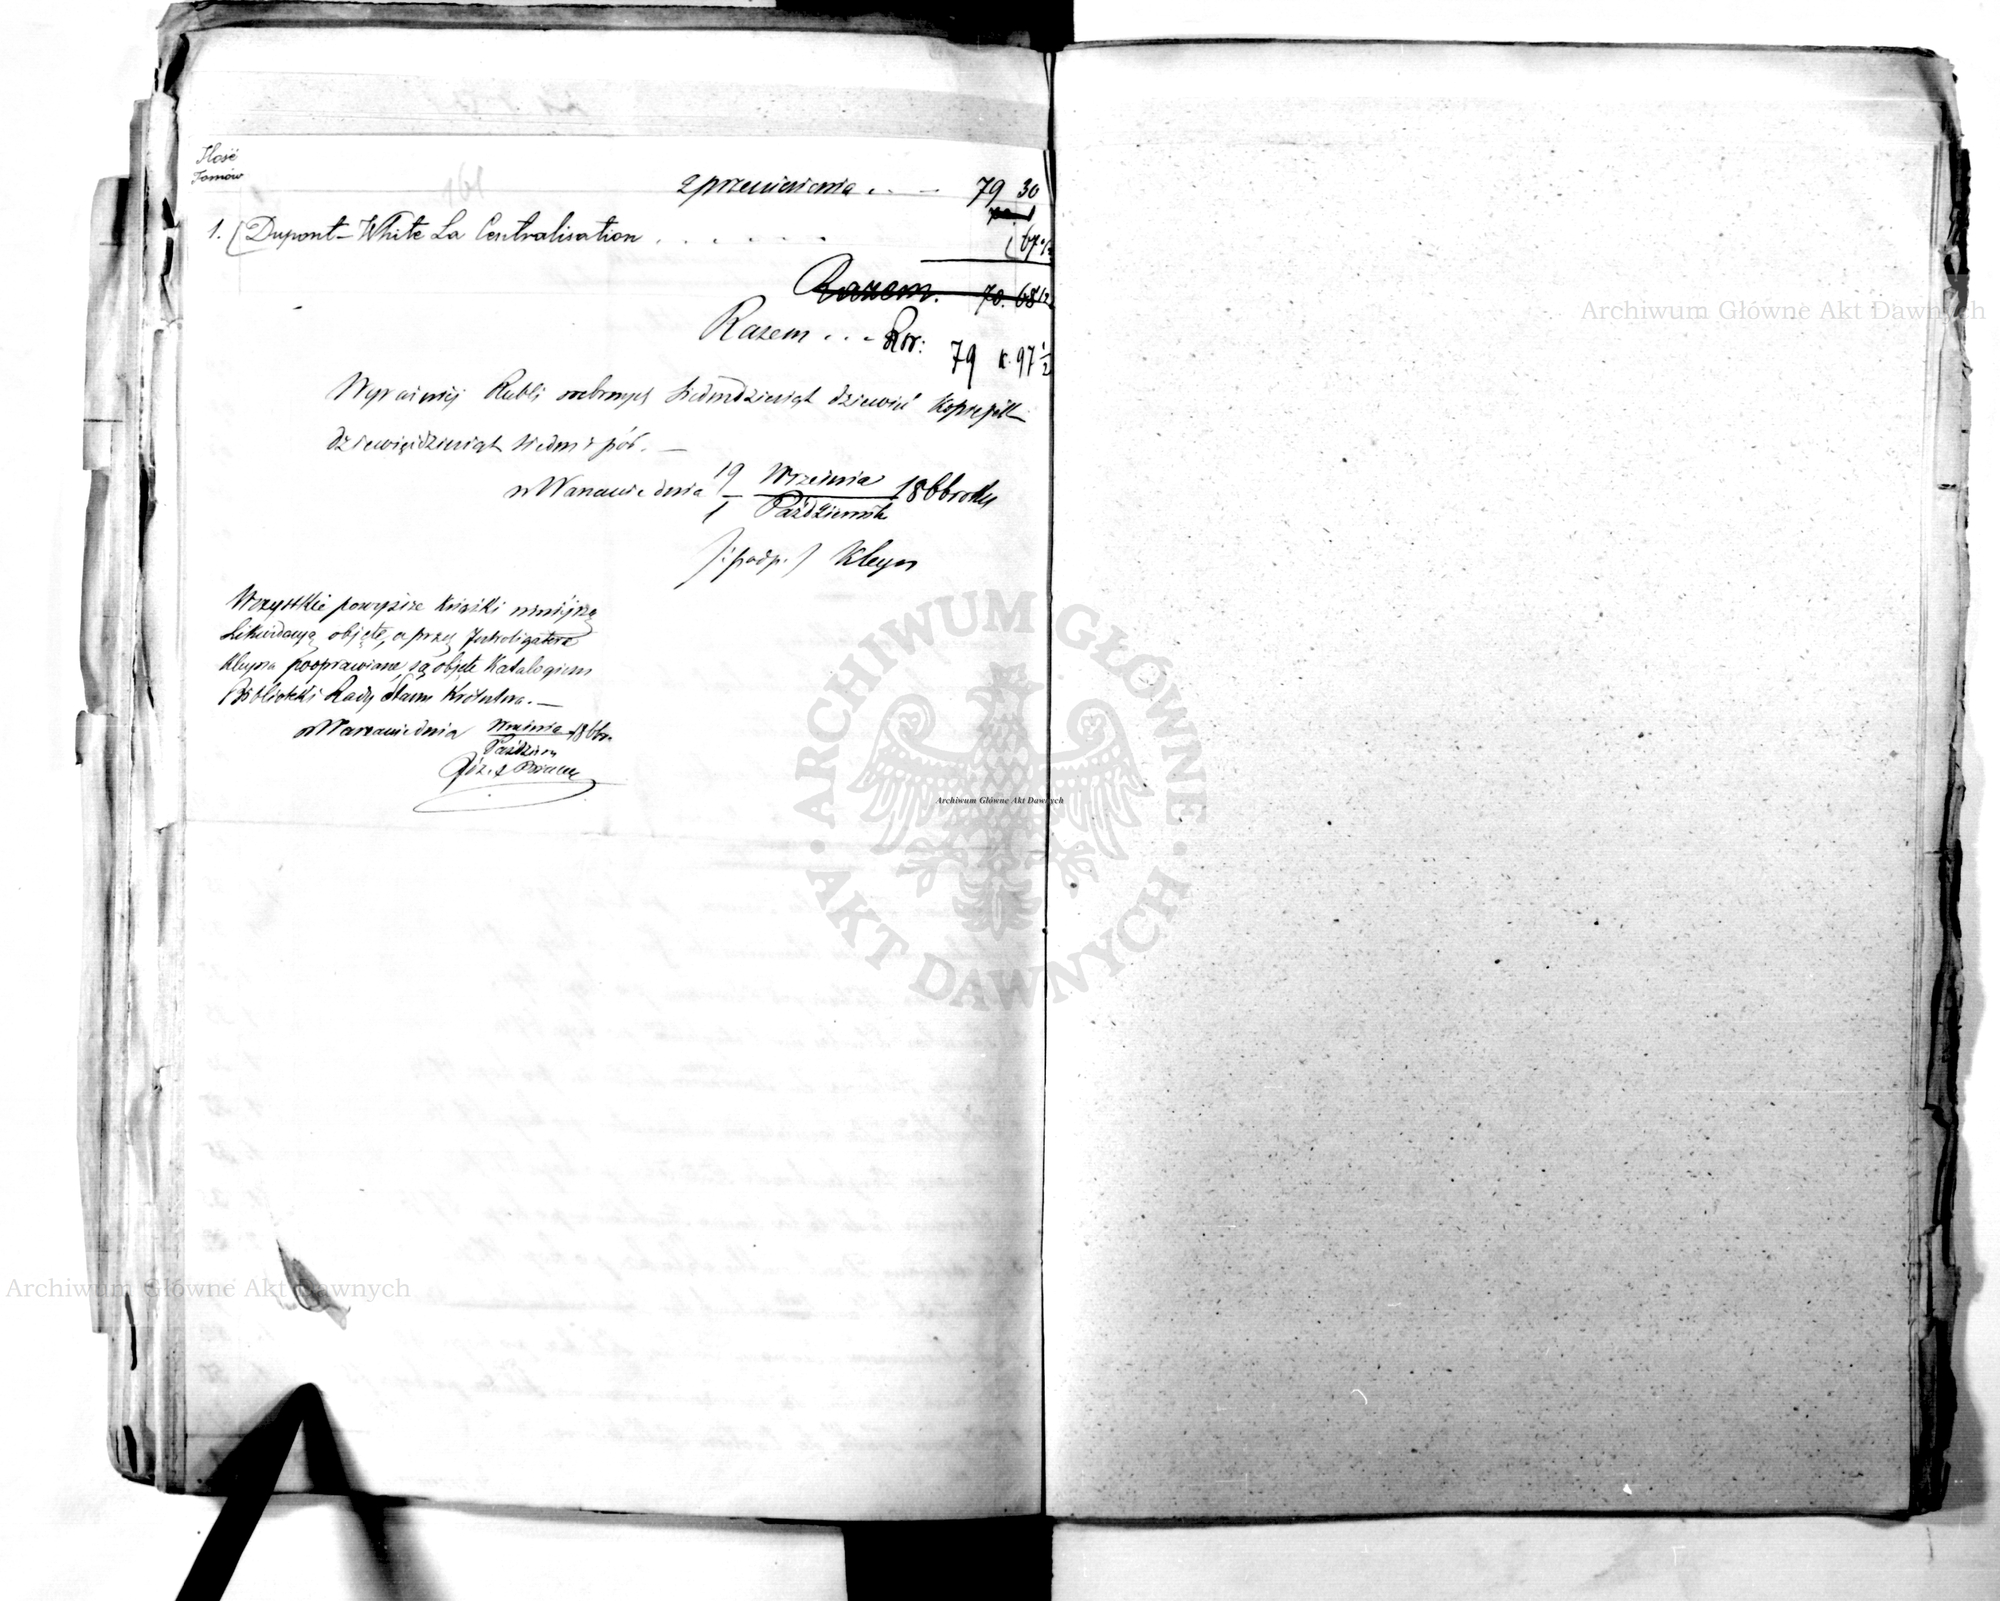 Ilość
Tomów
z przeniesienia . . — 79 30
1. Dupont-White La Centralisation . . . . . . 67 ½
Razem. 70. 68 ½
Razem . . . Rsr: 79 k. 97 ½
Wyraźniej Rubli srebrnych siedmdziesiąt dziewięć kopiejek
dziewięćdziesiąt siedm i pół. —
w Warszawie dnia 19/1 Września/Październik 1866 roku
/: podp. / Kleyn
Wszystkie powyższe książki niniejszą
Likwidacyą objęte, a przez Introligatora
Kleyna pooprawiane, są objęte Katalogiem
Biblioteki Rady Stanu Królestwa. —
w Warszawie dnia Września/Paździer 1866 r.
Józef
Archiwum Główne Akt Dawnych
ARCHIWUM GŁÓWNE AKT DAWNYCH
Archiwum Główne Akt Dawnych
Archiwum Główne Akt Dawnych